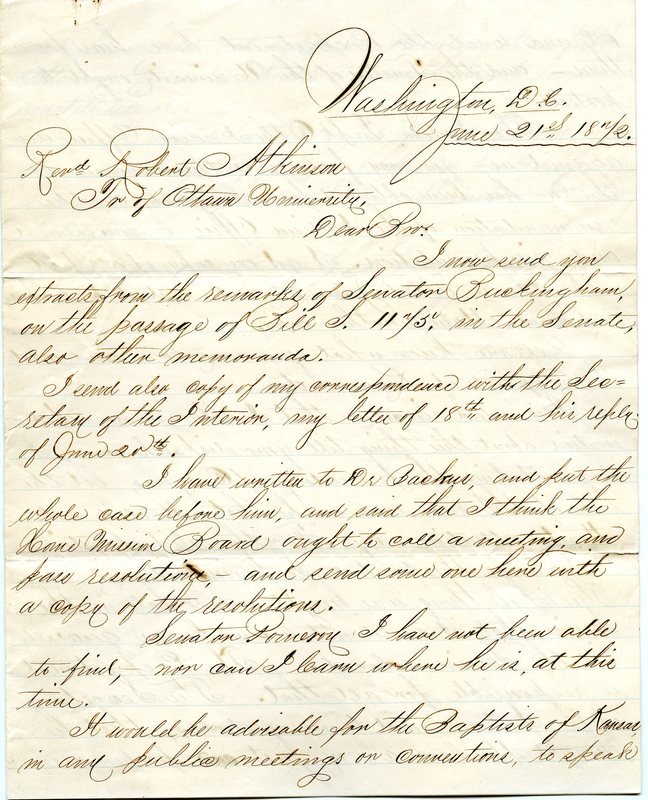 Washington, D.C.
June 21st 1872.
Revd Robert Atkinson
Tr of Ottawa University,
Dear Bro.
I now send you
extracts from the remarks of Senator Buckingham,
on the passage of Bill S. 1175. in the Senate,
also other memoranda.
I send also copy of my correspondence with the Sec=
retary of the Interior, my letter of 18th and his reply
of June 20th.
I have written to Dr Backus, and put the
whole case before him, and said that I think the
Home Mission Board ought to call a meeting, and
pass resolutions, – and send some one here with
a copy of the resolutions.
Senator Pomeroy I have not been able
to find, – nor can I learn where he is, at this
time.
It would be advisable for the Baptists of Kansas
in any public meetings or conventions, to speak